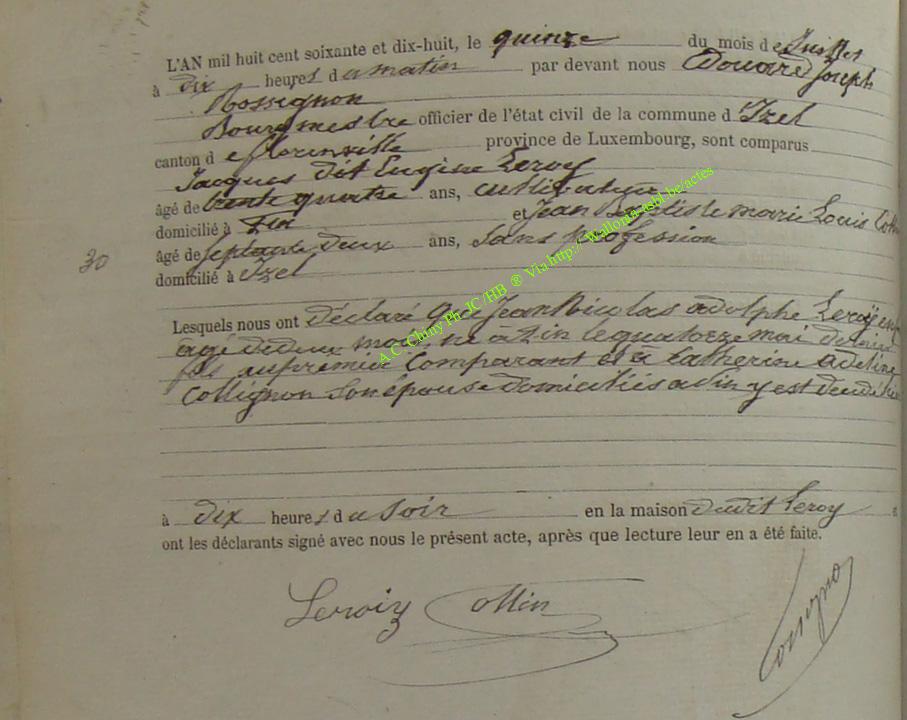 L'AN mil huit cent soixante et dix-huit, le quinze du mois de Juillet
à dix heures du matin par devant nous Edouard Joseph
Rossignon
Bourgmestre officier de l'état civil de la commune d Izel
canton d e florenville province de Luxembourg, sont comparus
Jacques dit Eugène Leroy
âgé de trente quatre ans, cultivateur
domicilié à et Jean Baptiste marie Louis
âgé de septante deux ans, Sans profession
domicilié à Izel
30
Lesquels nous ont déclaré que Jean Nicolas adolphe Leroy
agé de deux mois, né à le quatorze mai
fils au premier Comparant et à Catherine adeline
Collignon Son épouse domiciliés a y est
à dix heures du Soir en la maison dudit Leroy et
ont les déclarants signé avec nous le présent acte, après que lecture leur en a été faite.
Leroy Collin
A.C. Chiny Ph. JC/HB ® Via http:// Wallonia-asbl.be/actes